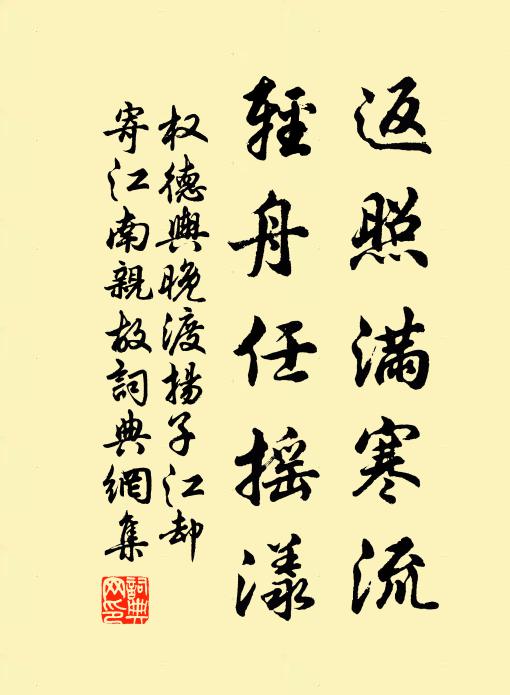 返照滿寒流
輕舟任搖漾
权德輿晚渡揚子江却
寄江南親故詞典網集
詞典網印